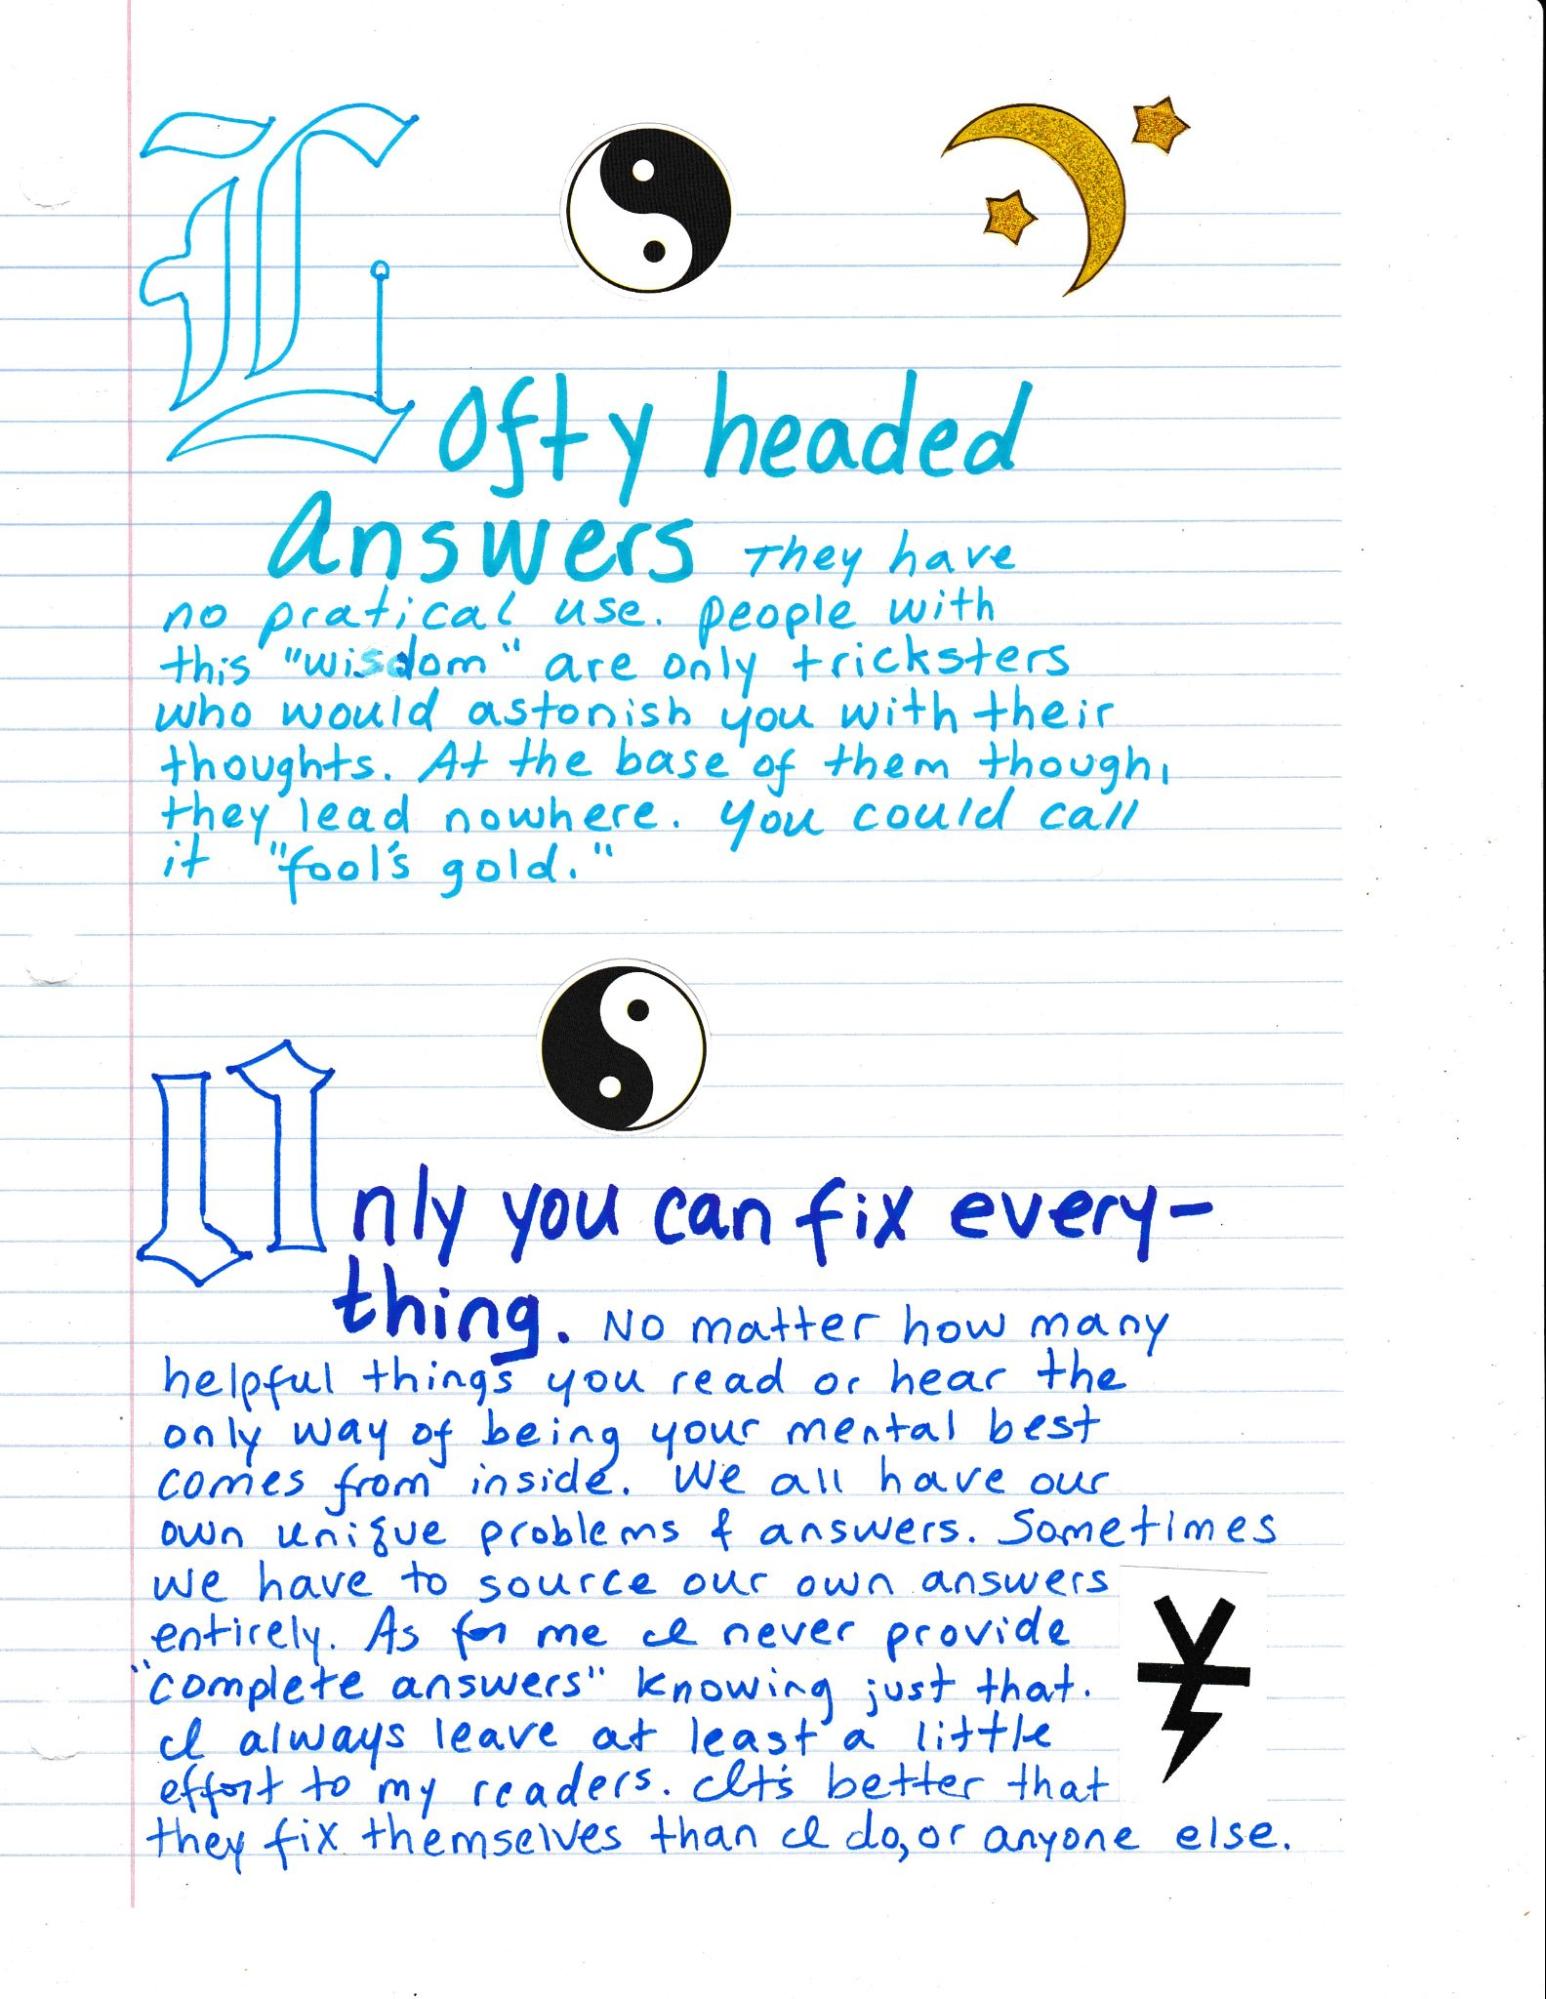 Lofty headed
answers They have
no pratical use. people with
this "wisdom" are only tricksters
who would astonish you with their
thoughts. At the base of them though,
they lead nowhere. you could call
it "fool's gold."
Only you can fix every-
thing. No matter how many
helpful things you read or hear the
only way of being your mental best
comes from inside. We all have our
own unique problems & answers. Sometimes
we have to source our own answers
entirely. As for me I never provide
"complete answers" knowing just that.
I always leave at least a little
effort to my readers. It's better that
they fix themselves than I do, or anyone else.